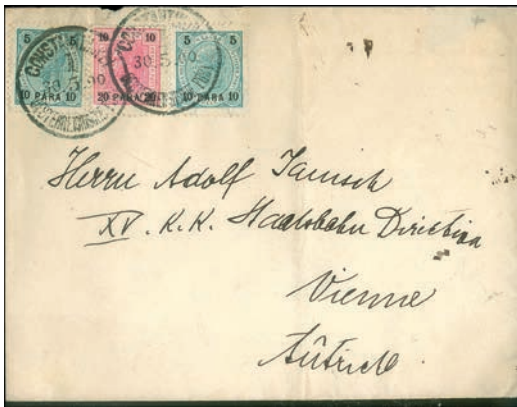 5 5 10 10 5 5
10 PARA 10 20 PARA 20 10 PARA 10
CONSTANTINOPEL
30.5.00
30.5.00
Herrn Adolf Janisch
XV. K.K. Staatsbahn Direction
Vienne
Autriche